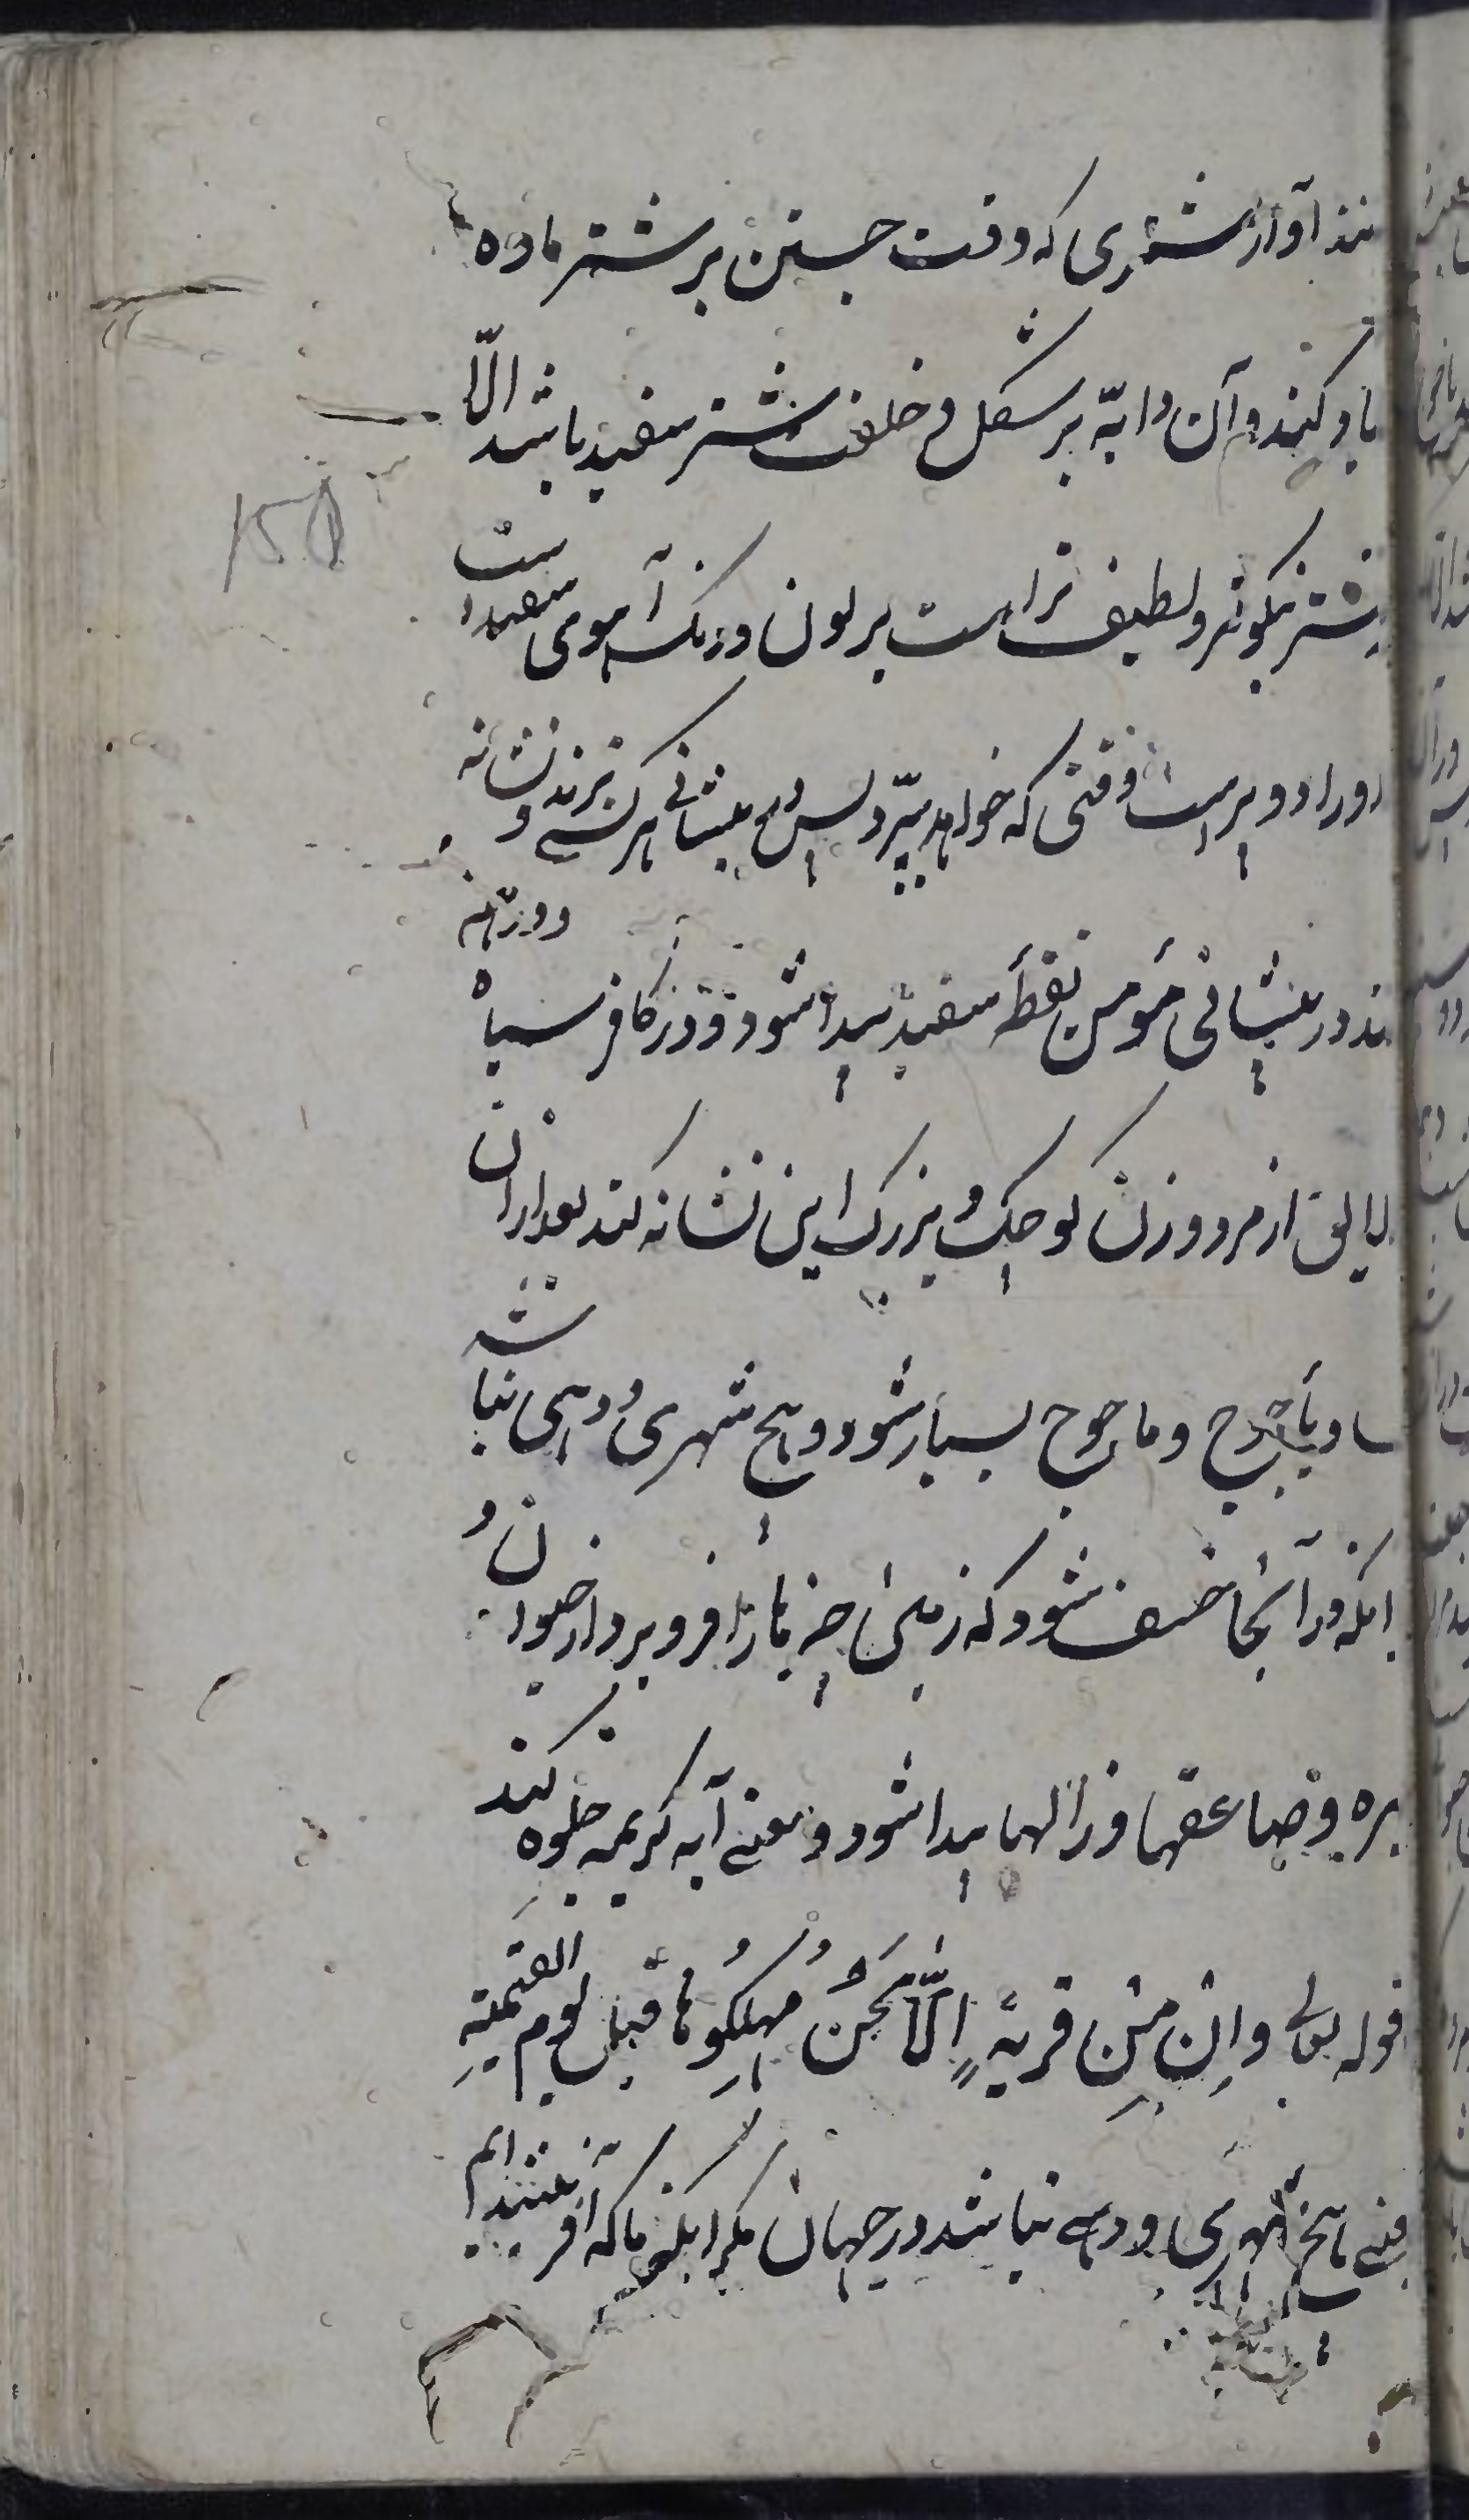 نند آواز شتری که وقت جستن بر شتر ماده
یاد کنند و آن دابّه بر شکل و خلقت شتر سفید باشد الّا
شتر نیکوتر و لطیف تر است بر لون و رنک آهوی سفید است
او را دو پر است وقتی که خواهد بپّرد پس در پیشانی هر کسی بزند نشانه و
ند در پیشانی مؤمن نقطهٔ سفید پیدا شود و در کافر سیاه و در همه
لایق از مرد و زن کوچک و بزرک این نشانه کند بعد از آن
یأجوج و مأجوج بسیار شود و هیچ شهری و دهی نباشد
انکه در آنجا خسف شود که زمین چیزها را فرو برد از حیوان و
یره و صاعقها و زلزلها پیدا شود و معنی آیه کریمه جلوه کند
قوله تعالی وَاِنْ مِنْ قریةٍ اِلّا نَحْنُ مُهلِکُوها قبلَ یوم القیمةِ
عنی هیچ شهری و دهی نباشد در جهان مکر انکه ما که آفریننده ایم
150